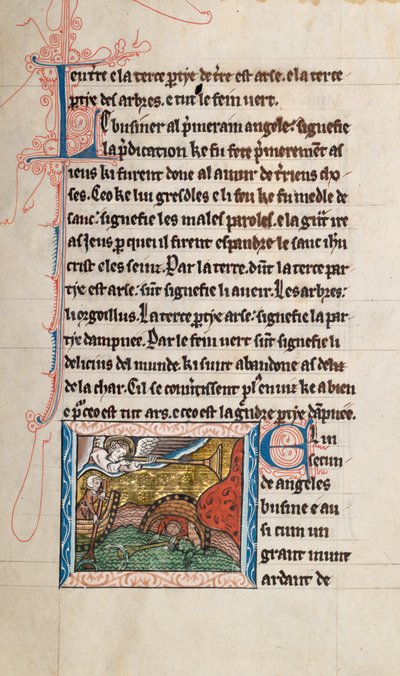 e la terce ptje de tre est arse. e la terce
ptje des arbres. e tut le fein vert.
Li businer al pmeram angele: signefie
la pdication ke fu fete pmerement as
ieus ki furent done al amur de triens cho
ses. Ceo ke lui gresdles e li feu ke fu medle de
sanc: signefie les males paroles. e la ire
as Jeus p quei il firent espandre le sanc ihu
crist e les seuns. Par la terre. dunt la terce par
tje est arse: sunt signefie li aueir. Les arbres:
li orgoillus. La terce ptje arse: signefie la par
tje dampnee. Par le fein vert sunt signefie li
delicius del munde. ki sunt abandone as deliz
de la char. Cil se ke a bien
e p ceo est tut ars. e ceo est la ptje dapnee.
E li
secun
de angeles
busine e au
si cum un
grant munt
ardant de